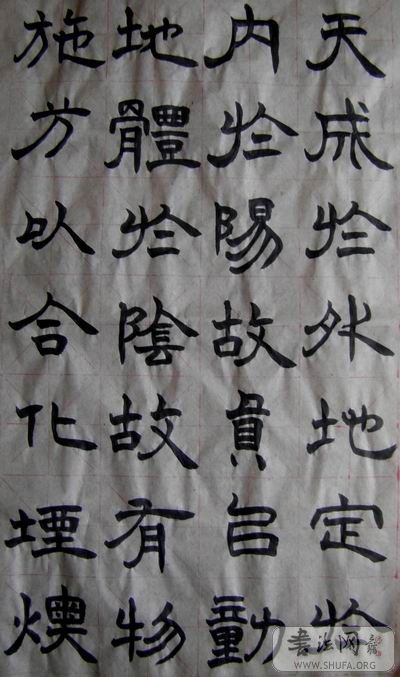 天成於外地定於
内於陽故員㠯動
地體於陰故有物
施方以合化堙燠
書法网
WWW.SHUFA.ORG